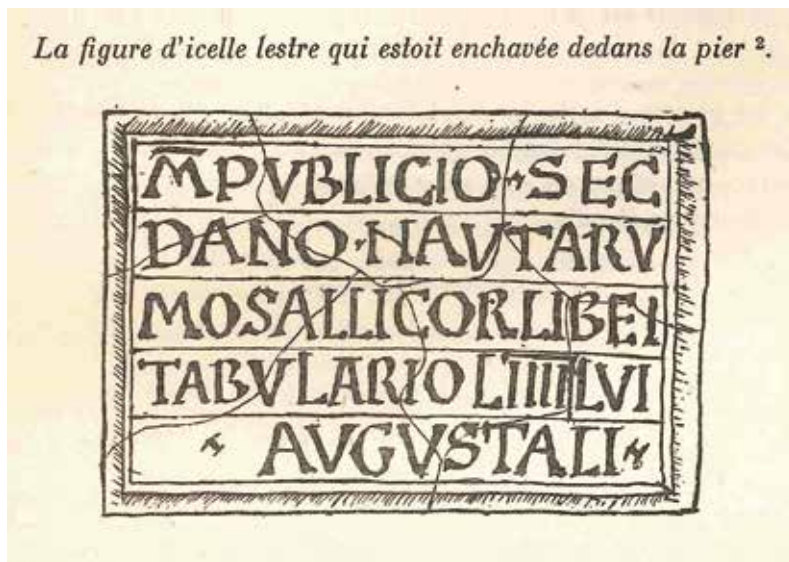 La figure d'icelle lestre qui estoit enchavée dedans la pier ².
M̅PVBLICIO·SEC
DANO·NAVTARV
MOSALLICORLIBEI
TABVLARIO LIIIIILVI
AVGVSTALI